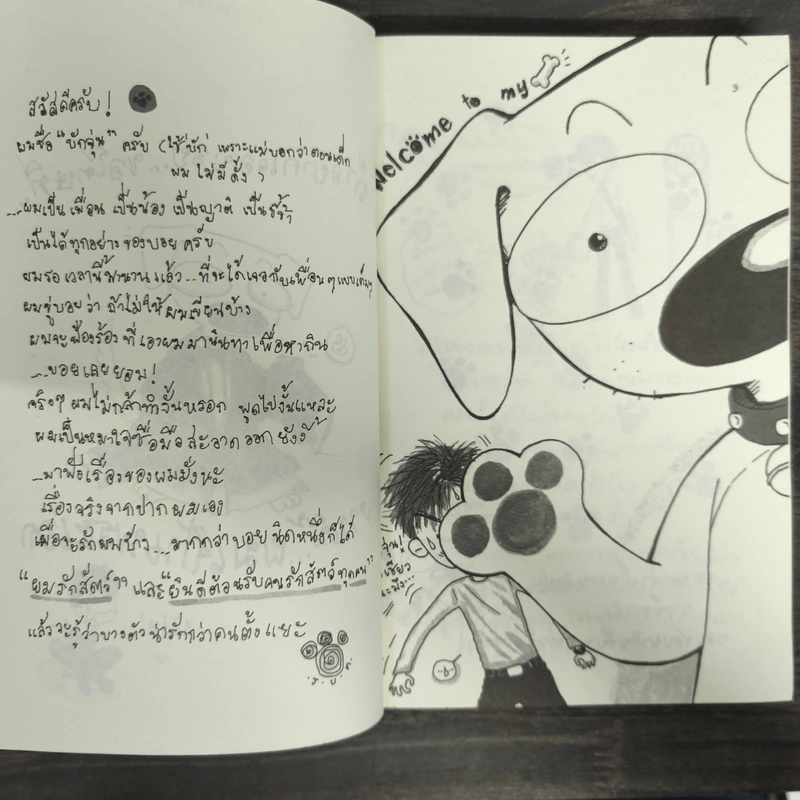 สวัสดีครับ!
ผมชื่อ "บักจุ่น" ครับ (ใช้ 'บัก' เพราะแม่บอกว่าตอนเด็ก
ผมไม่มีดั้ง)
...ผมเป็นเพื่อน เป็นน้อง เป็นญาติ เป็นขี้ข้า
เป็นได้ทุกอย่างของบอย ครับ
ผมรอเวลานี้มานานแล้ว...ที่จะได้เจอกับเพื่อนๆแบบเต็มๆ
ผมขู่บอยว่า ถ้าไม่ให้ผมเขียนบ้าง
ผมจะฟ้องร้องที่เอาผมมานินทาเพื่อหากิน
...บอยเลยยอม!
จริงๆ ผมไม่กล้าทำงั้นหรอก พูดไปงั้นแหละ
ผมเป็นหมาใจซื่อมือสะอาดออกยังงี้
...มาฟังเรื่องของผมมั่งนะ
เรื่องจริงจากปากผมเอง
เผื่อจะรักผมบ้าง...มากกว่าบอยนิดหนึ่งก็ได้
"ผมรักสัตว์" และ "ยินดีต้อนรับคนรักสัตว์ทุกคน"
แล้วจะรู้ว่าบางตัวน่ารักกว่าคนตั้งแยะ
Welcome to my
3